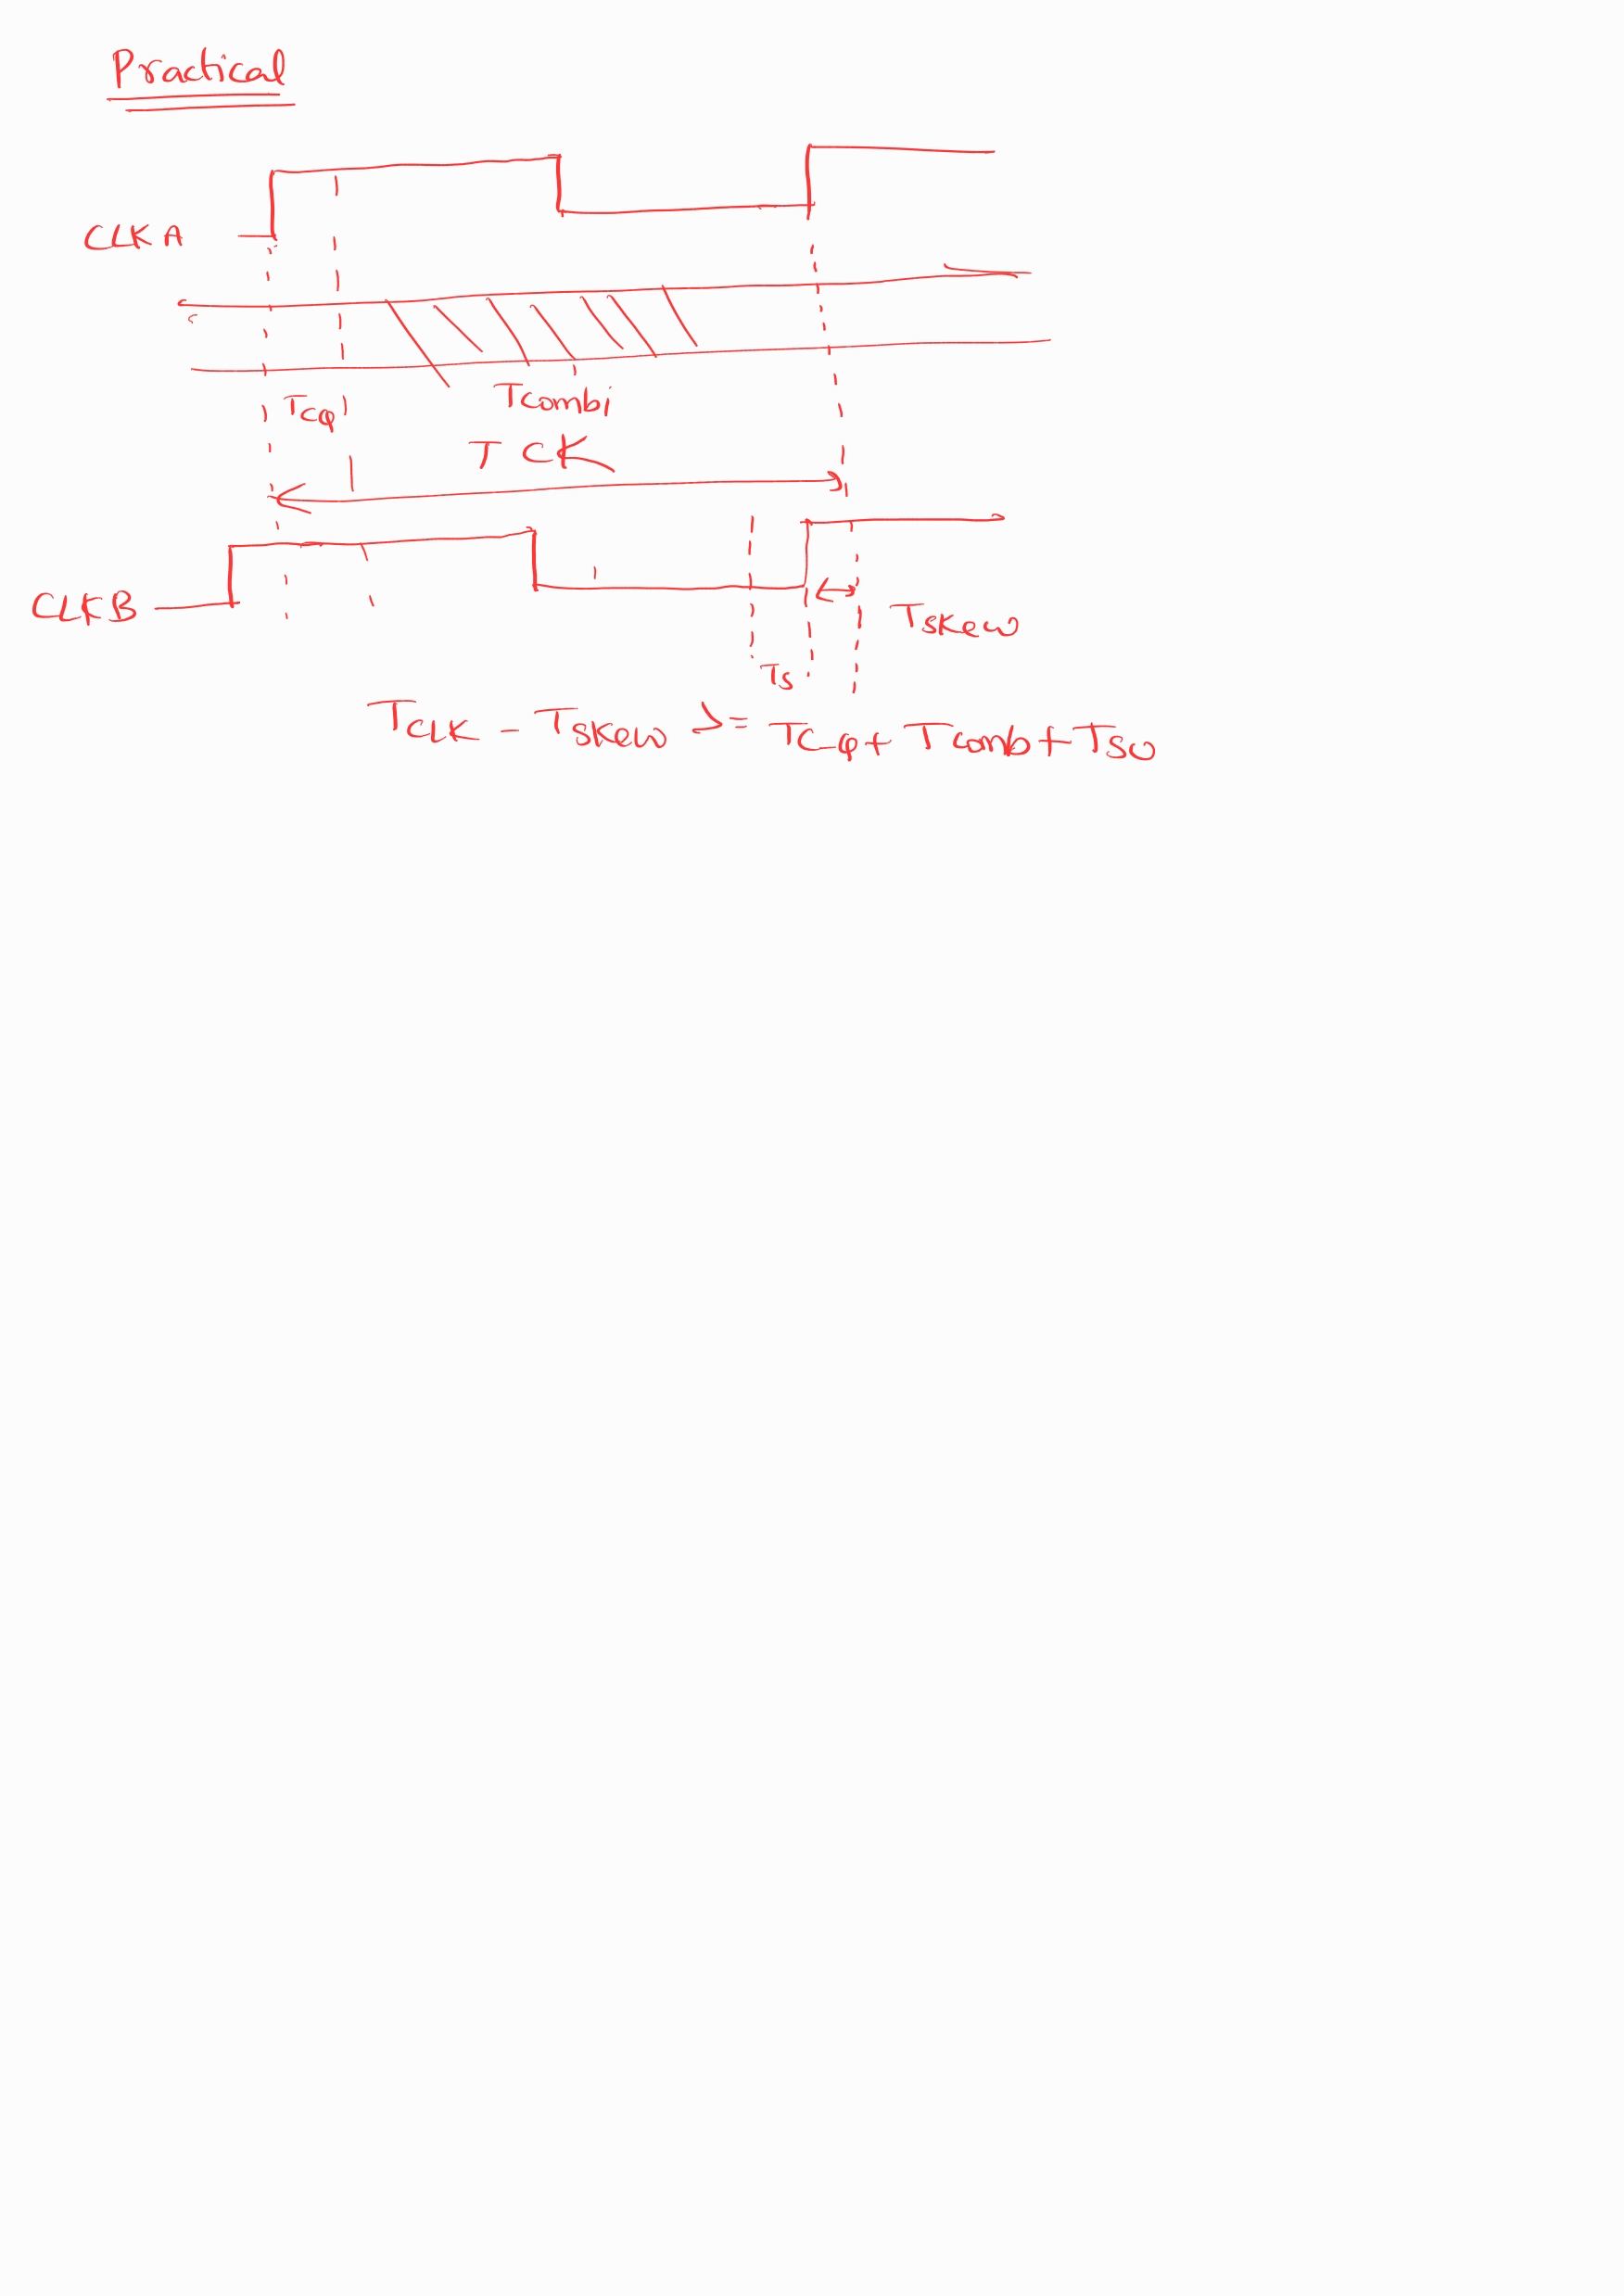 Practical
CLKA
Tcq
Tcombi
TCK
CLKB
Tskew
Ts
TCLK - Tskew >= TC-q + Tcomb + Tsu